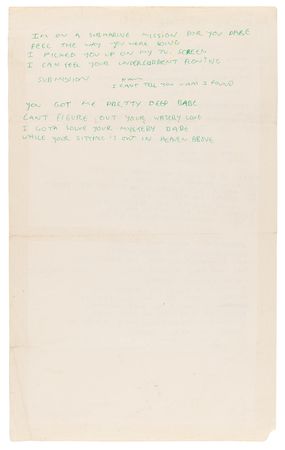 IM ON A SUBMARINE MISSION FOR YOU BABE
FEEL THE WAY YOU WERE GOING
I PICKED YOU UP ON MY TV SCREEN
I CAN FEEL YOUR UNDERCURRENT FLOWING
SUBMISSION
I CANT TELL YOU WHAT I FOUND
YOU GOT ME PRETTY DEEP BABE
CANT FIGURE OUT YOUR WATERY LOVE
I GOTA SOLVE YOUR MYSTERY BABE
WHILE YOUR SITTING OUT IN HEAVEN ABOVE